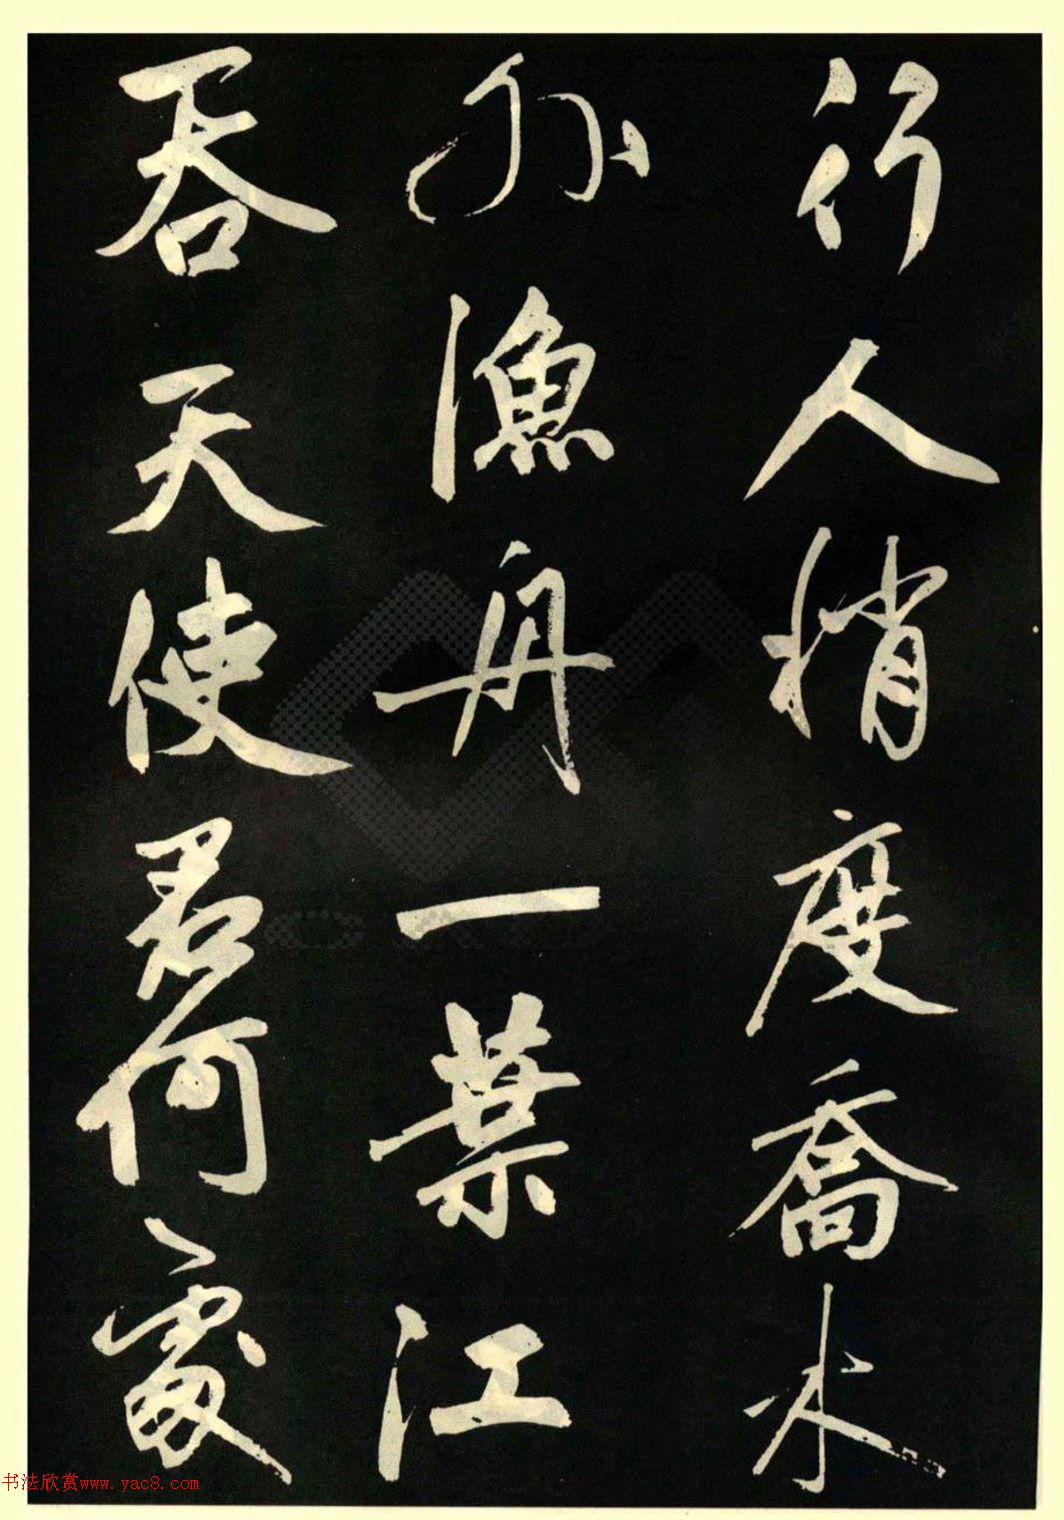 行人稍度喬木
外漁舟一葉江
吞天使君何處
书法欣赏www.yac8.com